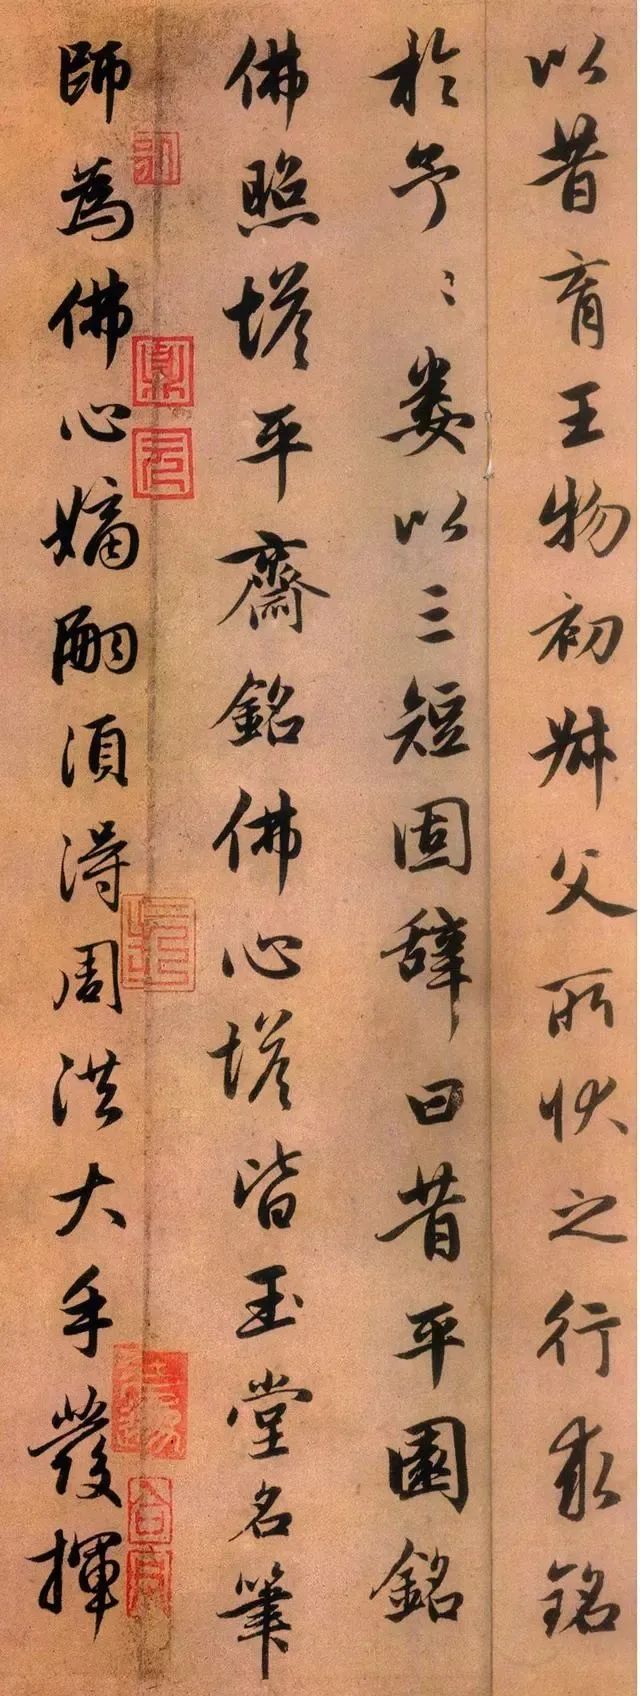 以昔育王物初叔父所狀之行求銘
於予〻婁以三短固辞曰昔平園銘
佛照塔平齋銘佛心塔皆玉堂名筆
師為佛心嫡嗣須得周洪大手發揮